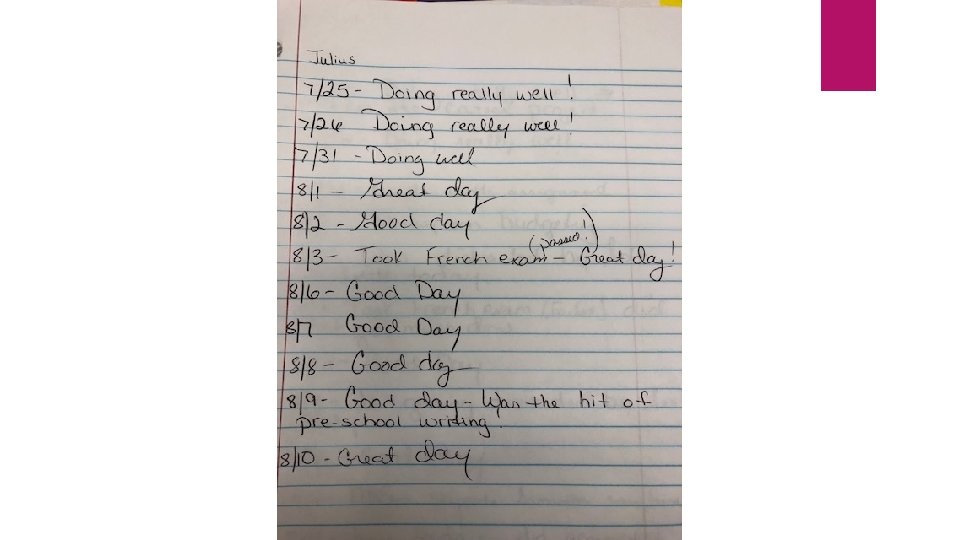 Julius
7/25 - Doing really well!
7/26 Doing really well!
7/31 - Doing well
8/1 - Great day
8/2 - Good day
(passed!)
8/3 - Took French exam - Great day!
8/6 - Good Day
8/7 Good Day
8/8 - Good day
8/9 - Good day - Was the hit of
pre-school writing!
8/10 - Great day